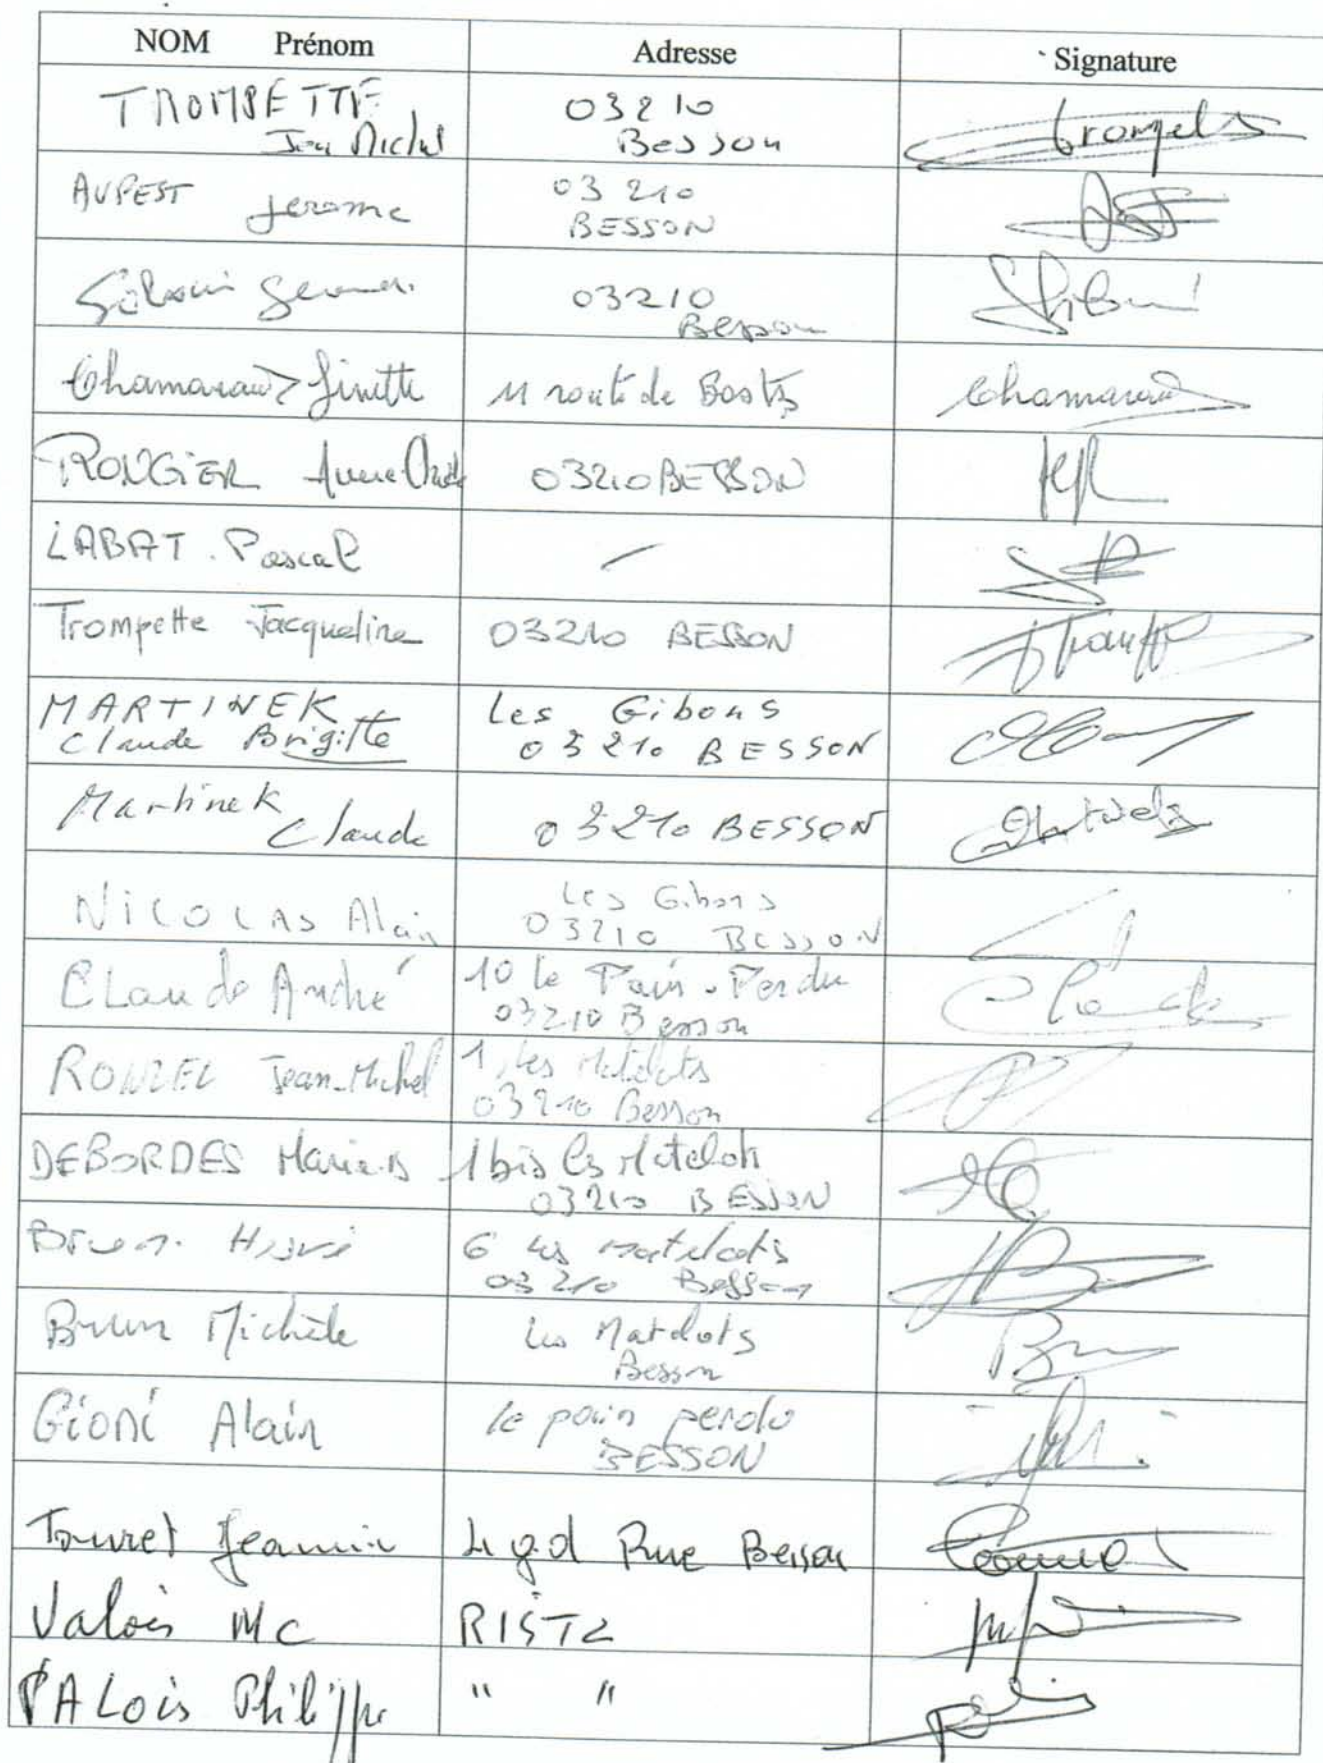 NOM Prénom Adresse Signature
TROMPETTE 03210
Jean Michel Besson
AUPEST Jerome 03 210
BESSON
03210
Besson
Chamaraud Ginette 11 route de Chamaraud
ROUGIER Anne 03210 BESSON
LABAT . Pascal
Trompette Jacqueline 03210 BESSON
MARTINEK Les Gibons
Claude Brigitte 03210 BESSON
Martinek
Claude 03210 BESSON
NICOLAS Alain Les Gibons
03210 BESSON
Claude André 10 le Pain-Perdu
03210 Besson
Jean-Michel 1, les Matelots
03210 Besson
DEBORDES 1 bis les Matelots
03210 BESSON
Brun Hervé 6 les matelots
03210 Besson
Brun Michèle Les Matelots
Besson
Gioni Alain le pain perdu
BESSON
Touret Rue Besson
Valois MC
VALOIS Philippe " "